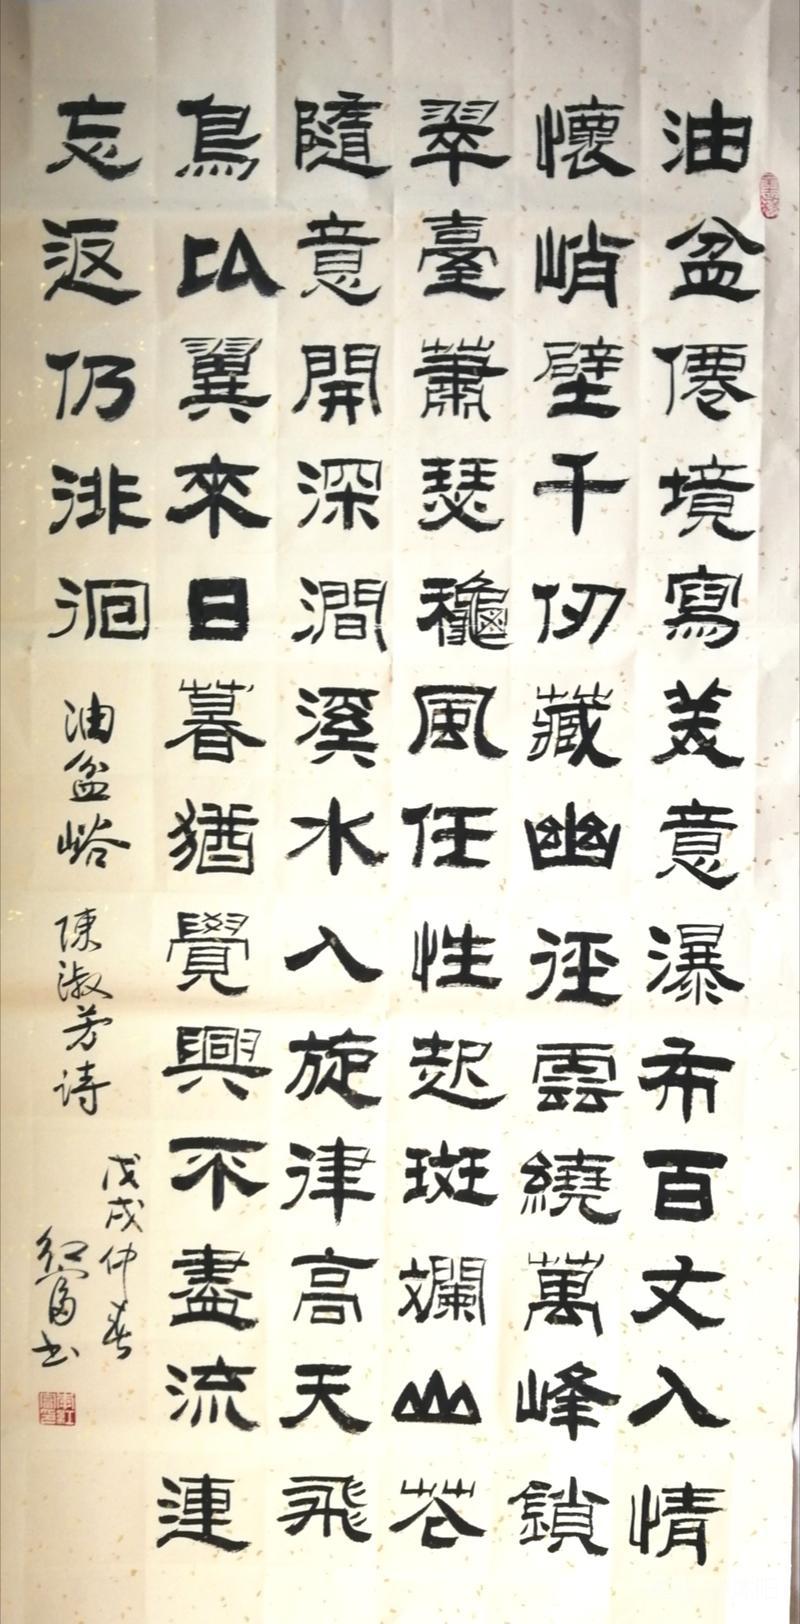 油盆僊境寫美意瀑布百丈入情
懷峭壁千仞藏幽徑雲繞萬峰鎖
翠臺蕭瑟龝風任性起斑斕山花
隨意開深澗溪水入旋律高天飛
鳥以翼來日暮猶覺興不盡流連
忘返仍徘徊
油盆峪
陳淑芳诗
戊戌仲春
紅富书